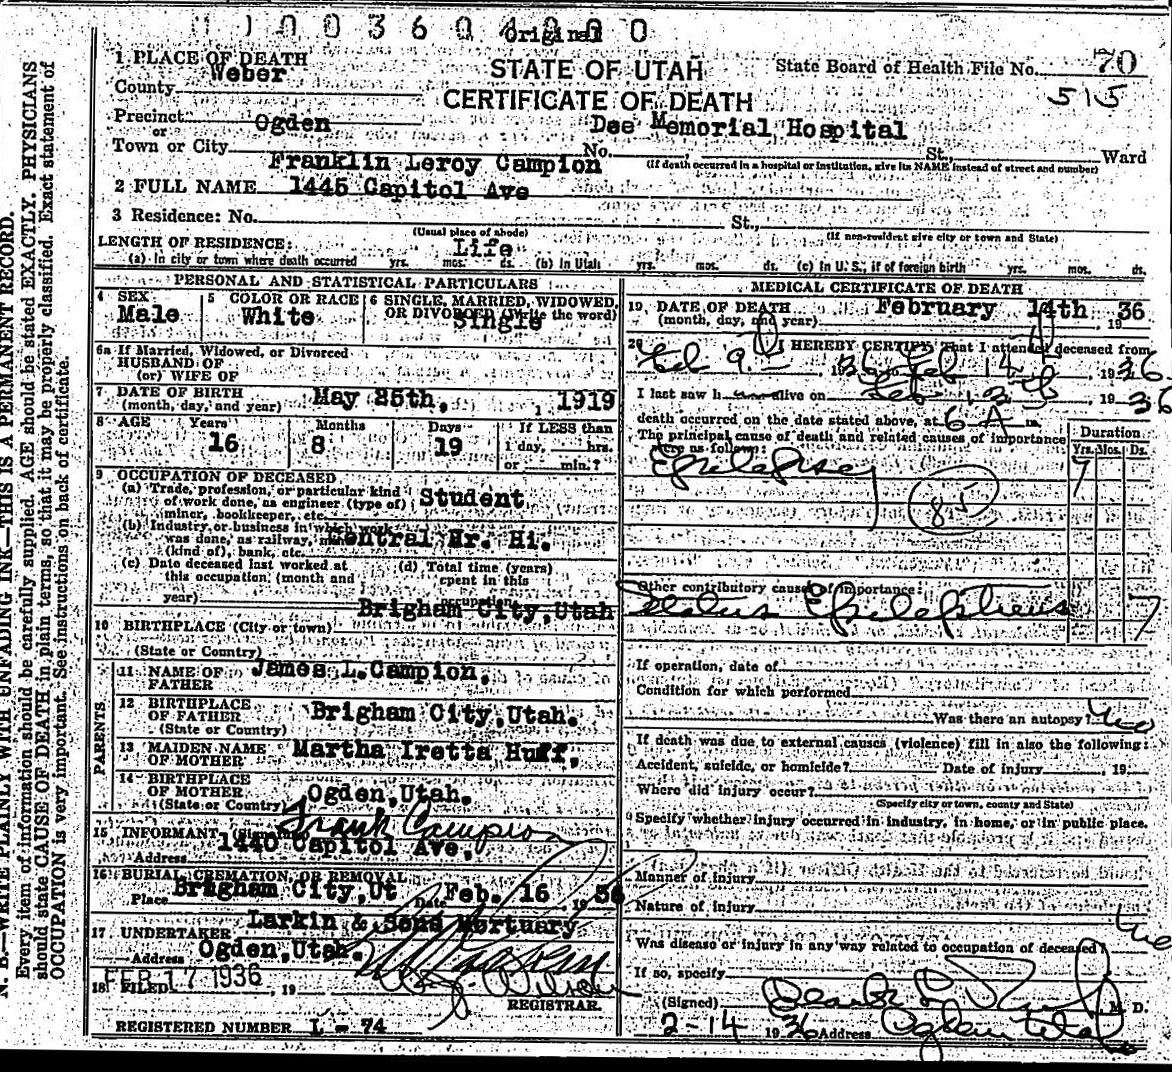 1003604000
Original
1 PLACE OF DEATH
STATE OF UTAH
State Board of Health File No. 70
County Weber
515
CERTIFICATE OF DEATH
Precinct Ogden
or
Dee Memorial Hospital
Town or City No. St. Ward
(If death occurred in a hospital or institution, give its NAME instead of street and number)
Franklin Leroy Campion
2 FULL NAME
1445 Capitol Ave
3 Residence: No. St.,
(Usual place of abode) (If non-resident give city or town and State)
LENGTH OF RESIDENCE: Life
(a) In city or town where death occurred yrs. mos. ds. (b) In Utah yrs. mos. ds. (c) In U. S., if of foreign birth yrs. mos. ds.
PERSONAL AND STATISTICAL PARTICULARS
4 SEX Male
5 COLOR OR RACE White
6 SINGLE, MARRIED, WIDOWED, OR DIVORCED (Write the word) Single
6a If Married, Widowed, or Divorced
HUSBAND OF
(or) WIFE OF
7 DATE OF BIRTH May 25th, 1919
(month, day, and year)
8 AGE Years Months Days If LESS than
16 8 19 1 day, hrs.
or min.?
9 OCCUPATION OF DECEASED
(a) Trade, profession, or particular kind
of work done, as engineer (type of)
miner, bookkeeper, etc. Student
(b) Industry or business in which work
was done, as railway,
(kind of), bank, etc. Central Hr. Hi.
(c) Date deceased last worked at
this occupation (month and
year)
(d) Total time (years)
spent in this
occupation
Brigham City, Utah
10 BIRTHPLACE (City or town)
(State or Country)
PARENTS
11 NAME OF FATHER James L. Campion,
12 BIRTHPLACE OF FATHER Brigham City, Utah.
(State or Country)
13 MAIDEN NAME OF MOTHER Martha Iretta Huff,
14 BIRTHPLACE OF MOTHER Ogden, Utah.
(State or Country)
15 INFORMANT (Signature) Frank Campion
Address 1440 Capitol Ave,
16 BURIAL, CREMATION, OR REMOVAL
Place Brigham City, Ut Date Feb. 16, 1936
Larkin & Sons Mortuary
17 UNDERTAKER
Address Ogden, Utah.
18 FILED FEB 17 1936, 19
REGISTRAR.
REGISTERED NUMBER L - 74
MEDICAL CERTIFICATE OF DEATH
19 DATE OF DEATH February 14th, 1936
(month, day, and year)
20 I HEREBY CERTIFY That I attended deceased from
Feb 9th, 1936 Feb 14th, 1936.
I last saw h alive on Feb 13th, 1936
death occurred on the date stated above, at 6 A m.
The principal cause of death and related causes of importance
were as follows:
Duration
Yrs. Mos. Ds.
Epilepsy 7
85
Other contributory causes of importance:
Status Epilepticus 7
If operation, date of
Condition for which performed
Was there an autopsy? No
If death was due to external causes (violence) fill in also the following:
Accident, suicide, or homicide? Date of injury, 19
Where did injury occur?
(Specify city or town, county and State)
Specify whether injury occurred in industry, in home, or in public place.
Manner of injury
Nature of injury
Was disease or injury in any way related to occupation of deceased? No
If so, specify
(Signed) M. D.
2-14 1936 Address Ogden Utah
N. B.—WRITE PLAINLY WITH UNFADING INK—THIS IS A PERMANENT RECORD.
Every item of information should be carefully supplied. AGE should be stated EXACTLY. PHYSICIANS
should state CAUSE OF DEATH in plain terms, so that it may be properly classified. Exact statement of
OCCUPATION is very important. See instructions on back of certificate.